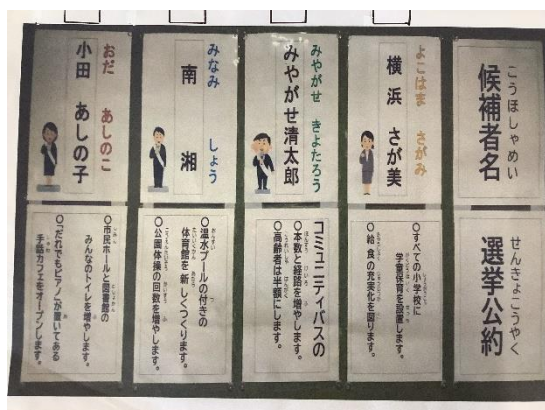 こうほしゃめい
候補者名
せんきょこうやく
選挙公約
よこはま さがみ
横浜 さが美
〇すべての小学校に
学童保育を設置します。
〇給食の充実化を図ります。
みやがせ きよたろう
みやがせ清太郎
コミュニティバスの
〇本数と経路を増やします。
〇高齢者は半額にします。
みなみ しょう
南 湘
〇温水プールの付きの
体育館を新しくつくります。
〇公園体操の回数を増やします。
おだ あしのこ
小田 あしの子
〇市民ホールと図書館の
みんなのトイレを増やします。
〇「だれでもピアノ」が置いてある
手話カフェをオープンします。